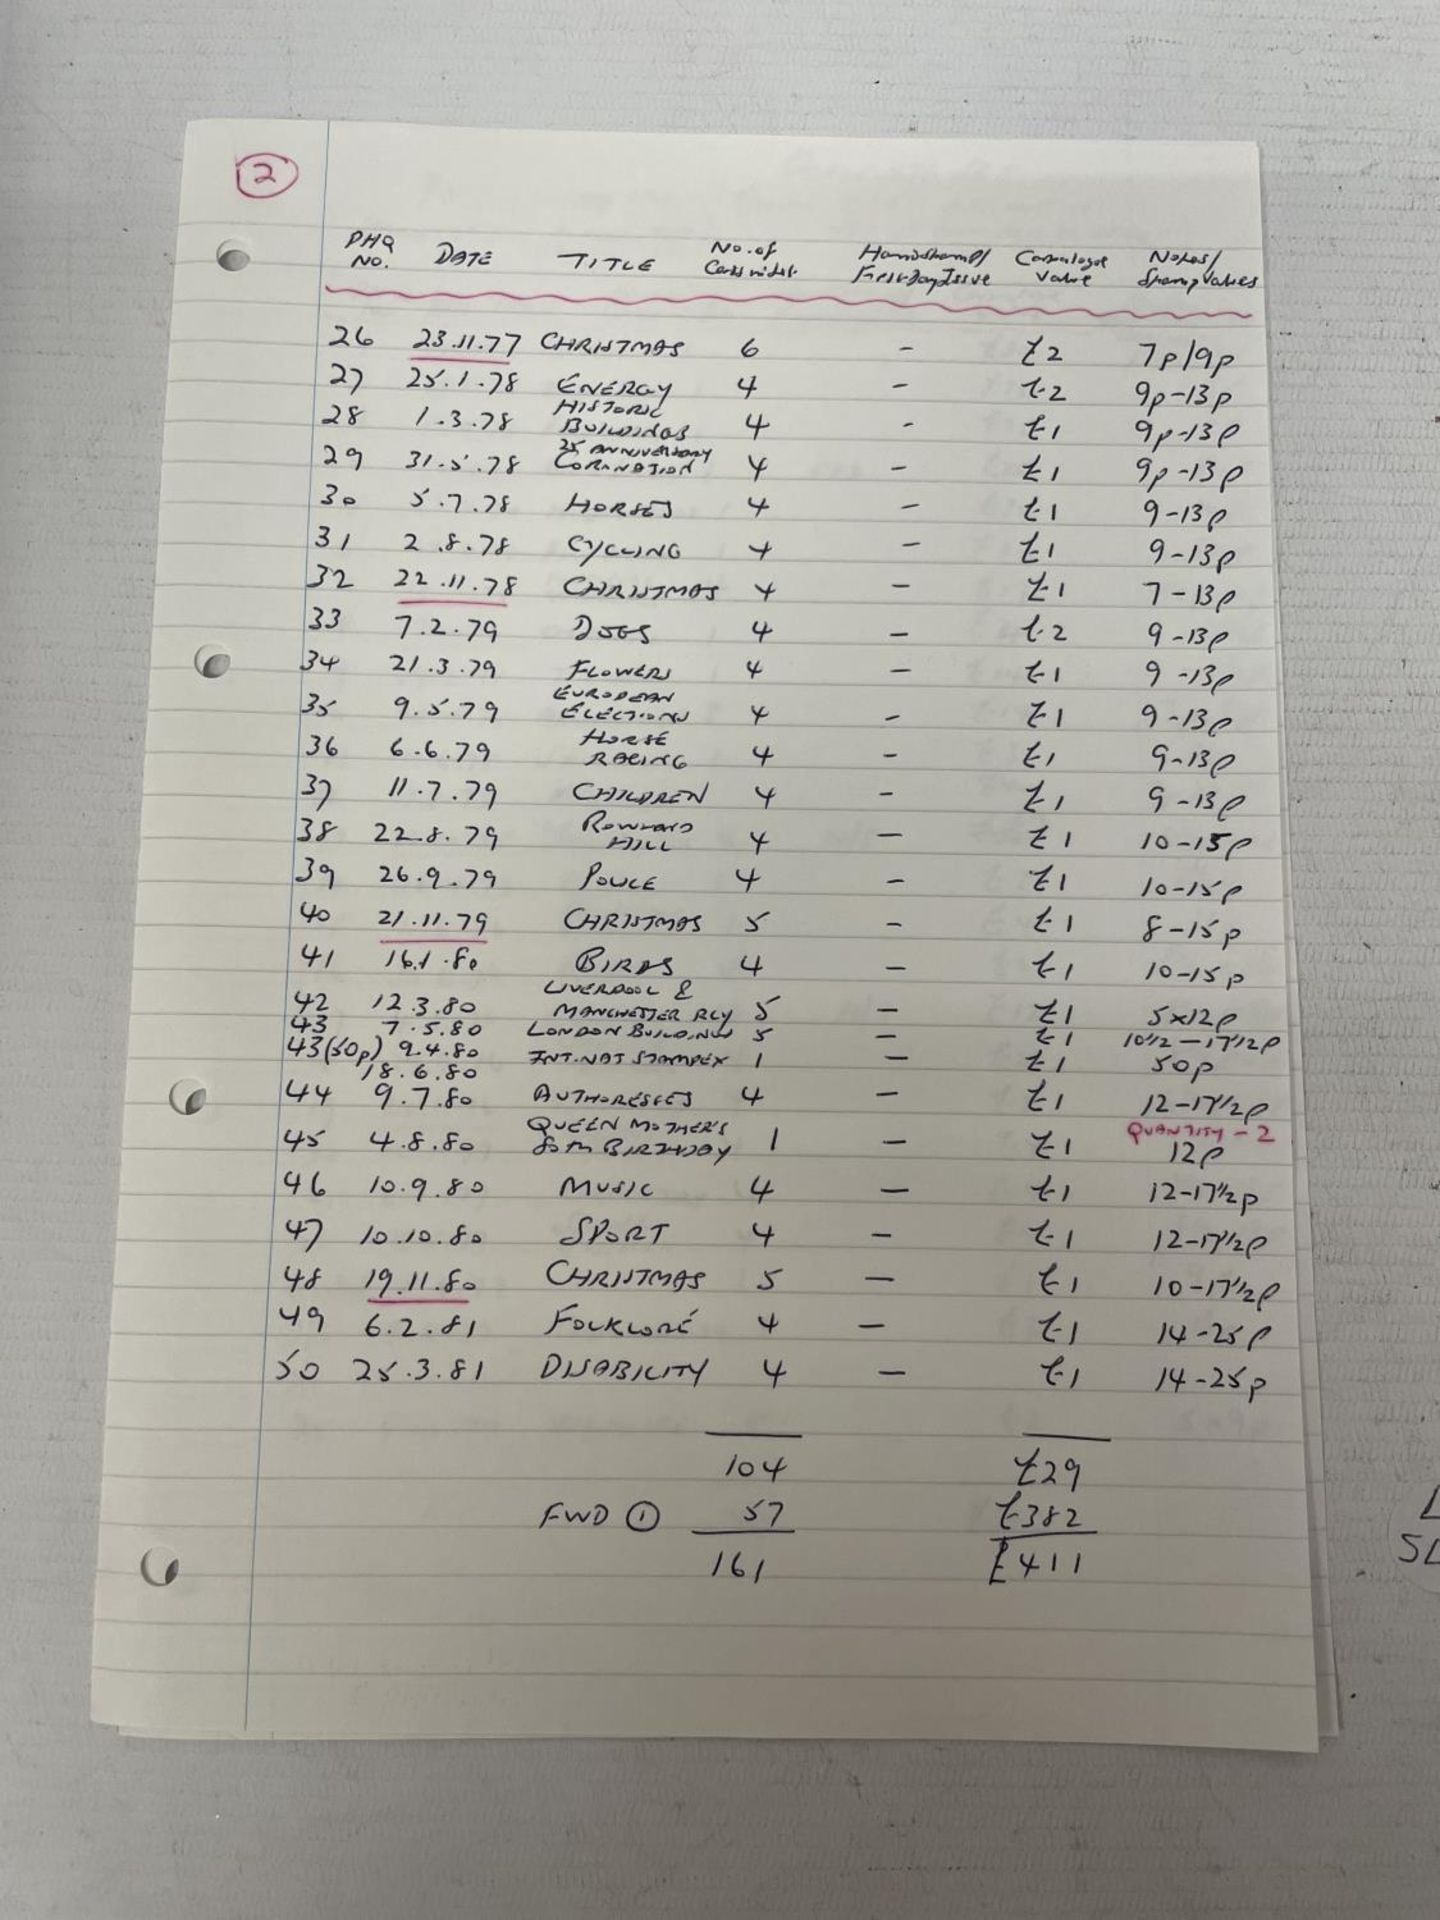 2
PHQ NO. DATE TITLE No. of Cards in set Handstamp/ First Day Issue Catalogue Value Notes/ Stamp Values
26 23.11.77 CHRISTMAS 6 - £2 7p/9p
27 25.1.78 ENERGY 4 - £2 9p-13p
28 1.3.78 HISTORIC BUILDINGS 4 - £1 9p-13p
29 31.5.78 25 ANNIVERSARY CORONATION 4 - £1 9p-13p
30 5.7.78 HORSES 4 - £1 9-13p
31 2.8.78 CYCLING 4 - £1 9-13p
32 22.11.78 CHRISTMAS 4 - £1 7-13p
33 7.2.79 DOGS 4 - £2 9-13p
34 21.3.79 FLOWERS 4 - £1 9-13p
35 9.5.79 EUROPEAN ELECTIONS 4 - £1 9-13p
36 6.6.79 HORSE RACING 4 - £1 9-13p
37 11.7.79 CHILDREN 4 - £1 9-13p
38 22.8.79 ROWLAND HILL 4 - £1 10-15p
39 26.9.79 POLICE 4 - £1 10-15p
40 21.11.79 CHRISTMAS 5 - £1 8-15p
41 16.1.80 BIRDS 4 - £1 10-15p
42 12.3.80 LIVERPOOL & MANCHESTER RLY 5 - £1 5x12p
43 7.5.80 LONDON BUILDINGS 5 - £1 10½-17½p
43(50p) 9.4.80 INT.NAT STAMPEX 1 - £1 50p
18.6.80
44 9.7.80 AUTHORESSES 4 - £1 12-17½p
QUANTITY-2
45 4.8.80 QUEEN MOTHER'S 80th BIRTHDAY 1 - £1 12p
46 10.9.80 MUSIC 4 - £1 12-17½p
47 10.10.80 SPORT 4 - £1 12-17½p
48 19.11.80 CHRISTMAS 5 - £1 10-17½p
49 6.2.81 FOLKLORE 4 - £1 14-25p
50 25.3.81 DISABILITY 4 - £1 14-25p
104 £29
FWD 1 57 £382
161 £411